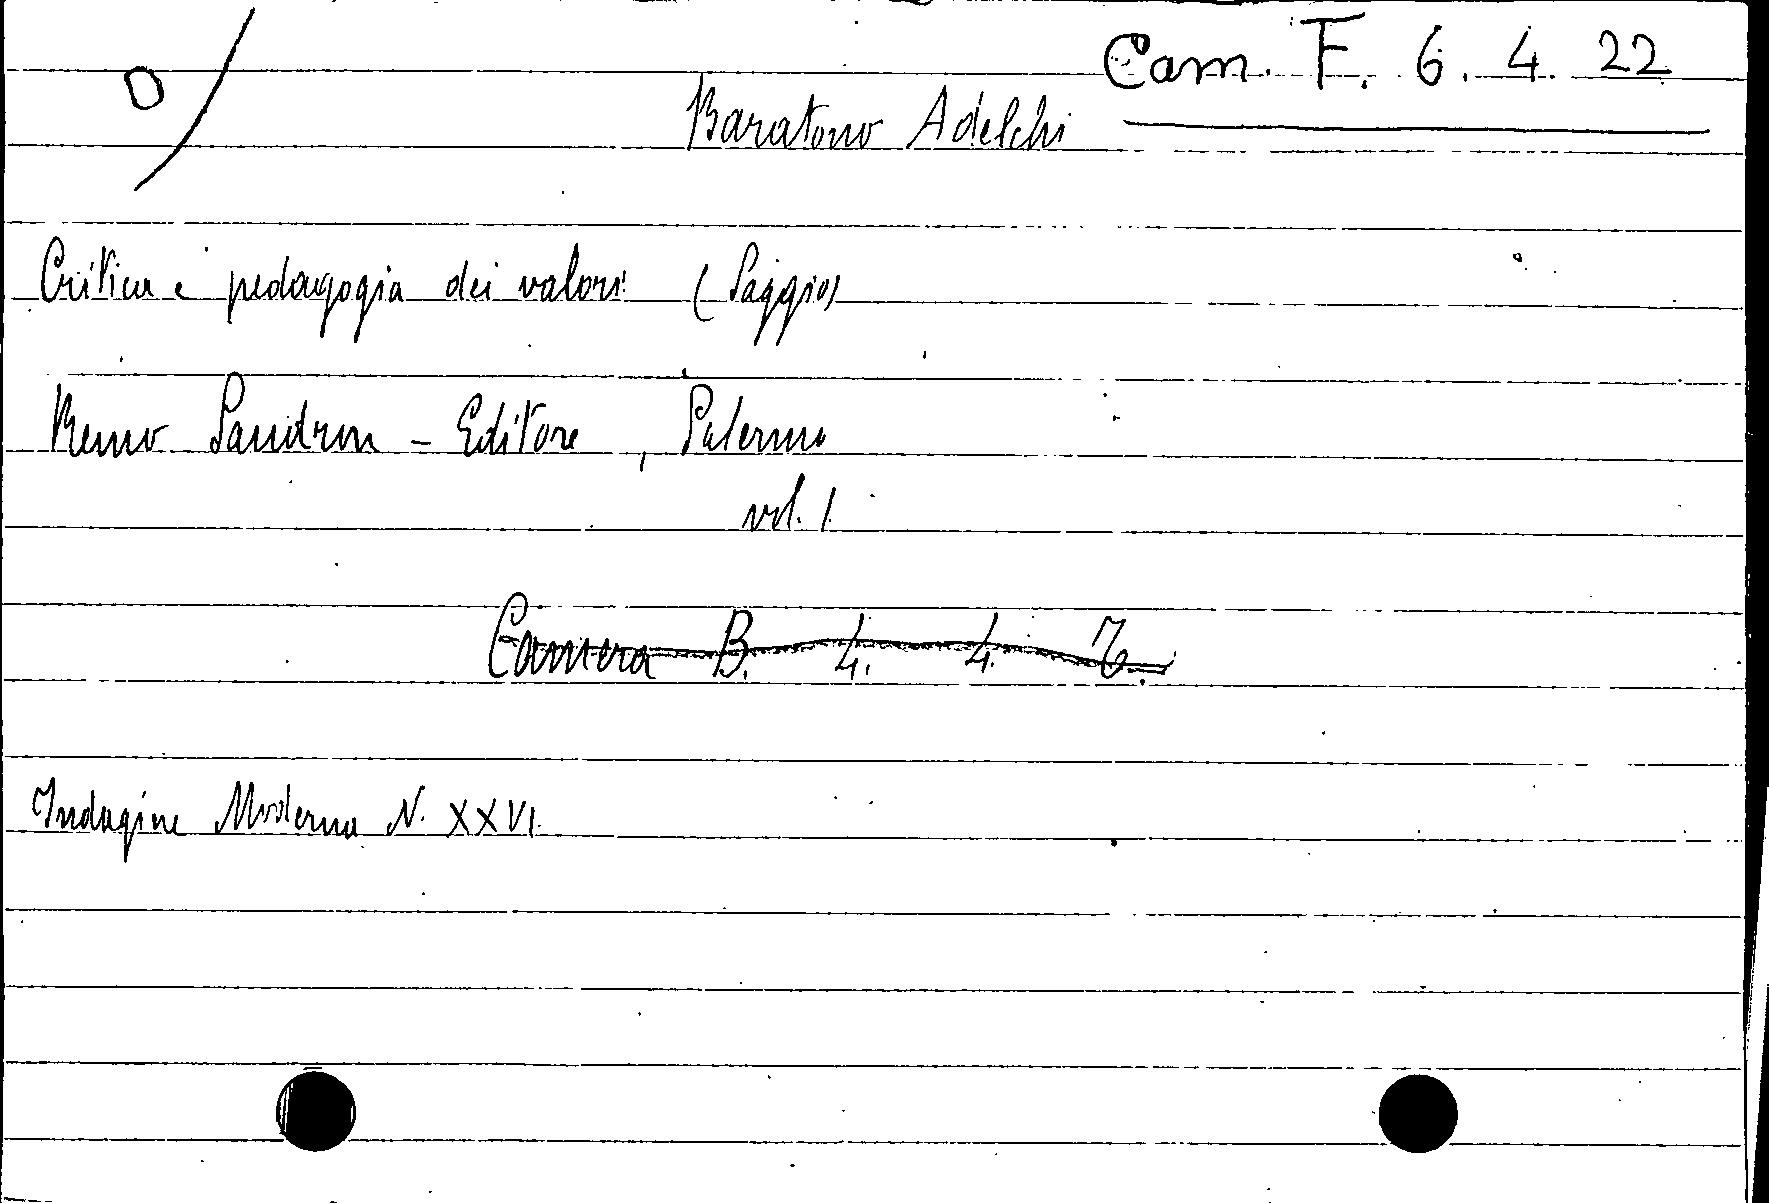 Cam. F. 6. 4. 22
Baratono Adelchi
Critica e pedagogia dei valori (Saggio)
Remo Sandron - Editore, Palermo
vol. 1.
Camera B. 4. 4. 7.
Indagine Moderna N. XXVI